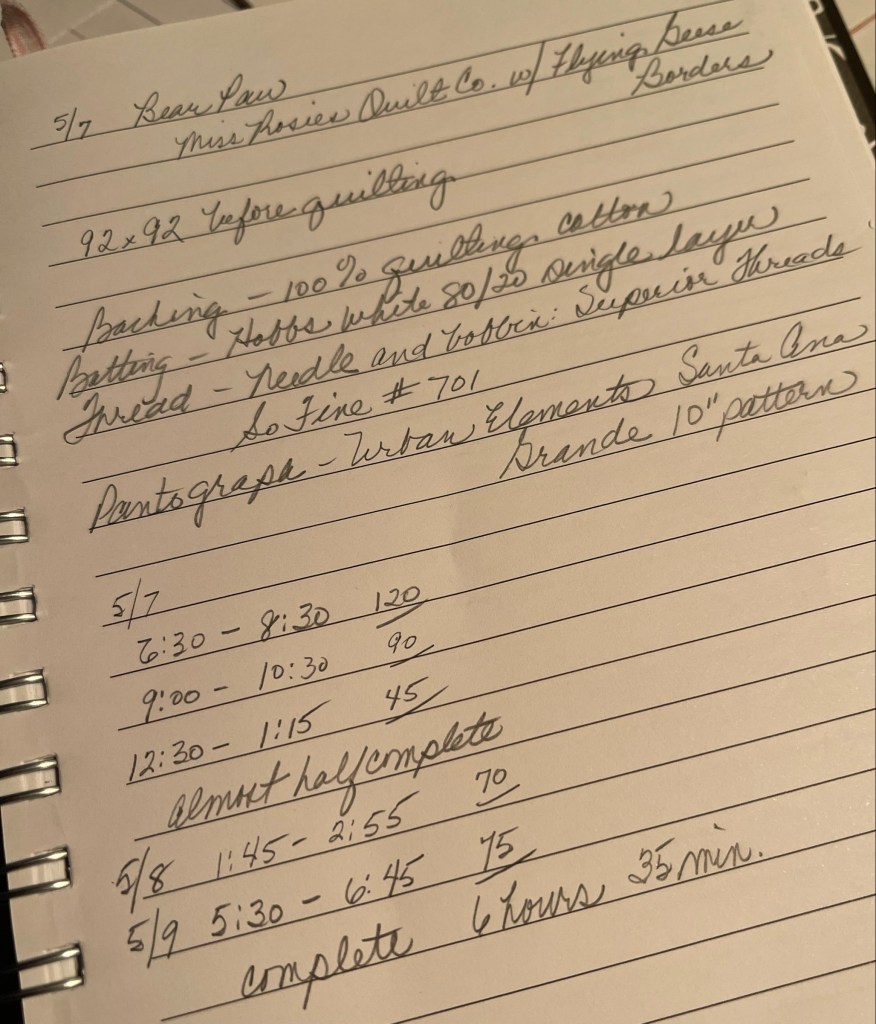 5/7 Bear Paw
Miss Rosies Quilt Co. w/ Flying Geese
Borders
92 x 92 before quilting
Backing - 100% quilting cotton
Batting - Hobbs White 80/20 single layer
Thread - Needle and bobbin: Superior Threads
So Fine # 701
Pantograph - Urban Elements Santa Ana
Grande 10" pattern
5/7
6:30 - 8:30 120
9:00 - 10:30 90
12:30 - 1:15 45
almost half complete
5/8 1:45 - 2:55 70
5/9 5:30 - 6:45 75
complete 6 hours 35 min.